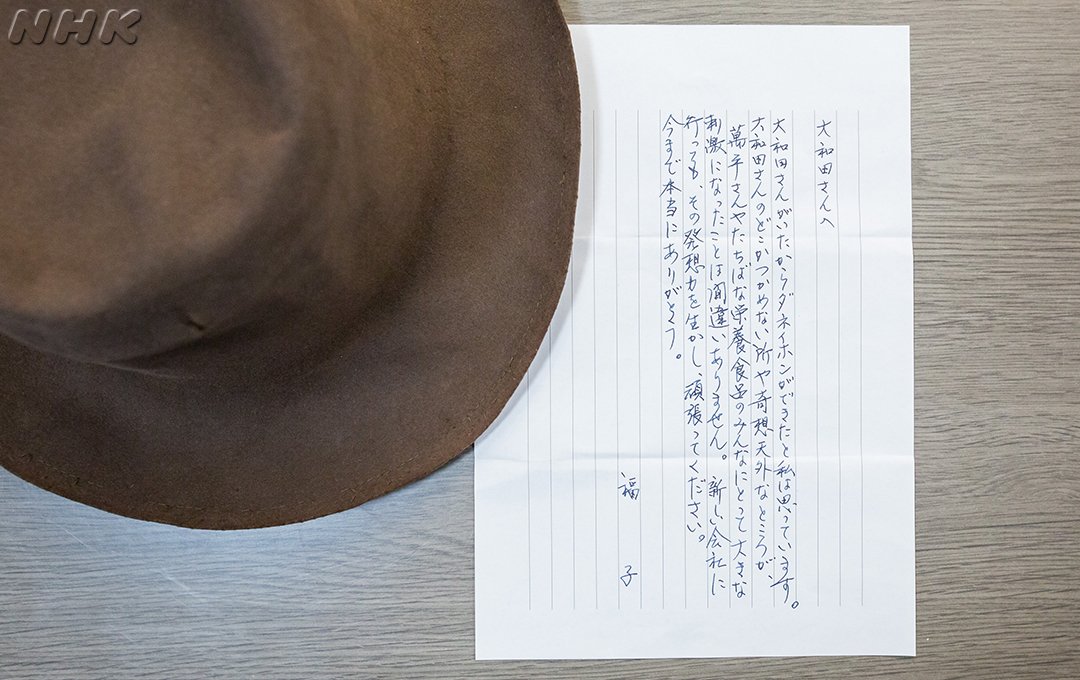 NHK
大和田さんへ
大和田さんがいたからダネイホンができたと私は思っています。
大和田さんのどこかつかめない所や奇想天外なところが、
萬平さんやたちばな栄養食品のみんなにとって大きな
刺激になったことは間違いありません。新しい会社に
行っても、その発想力を生かし、頑張ってください。
今まで本当にありがとう。
福子